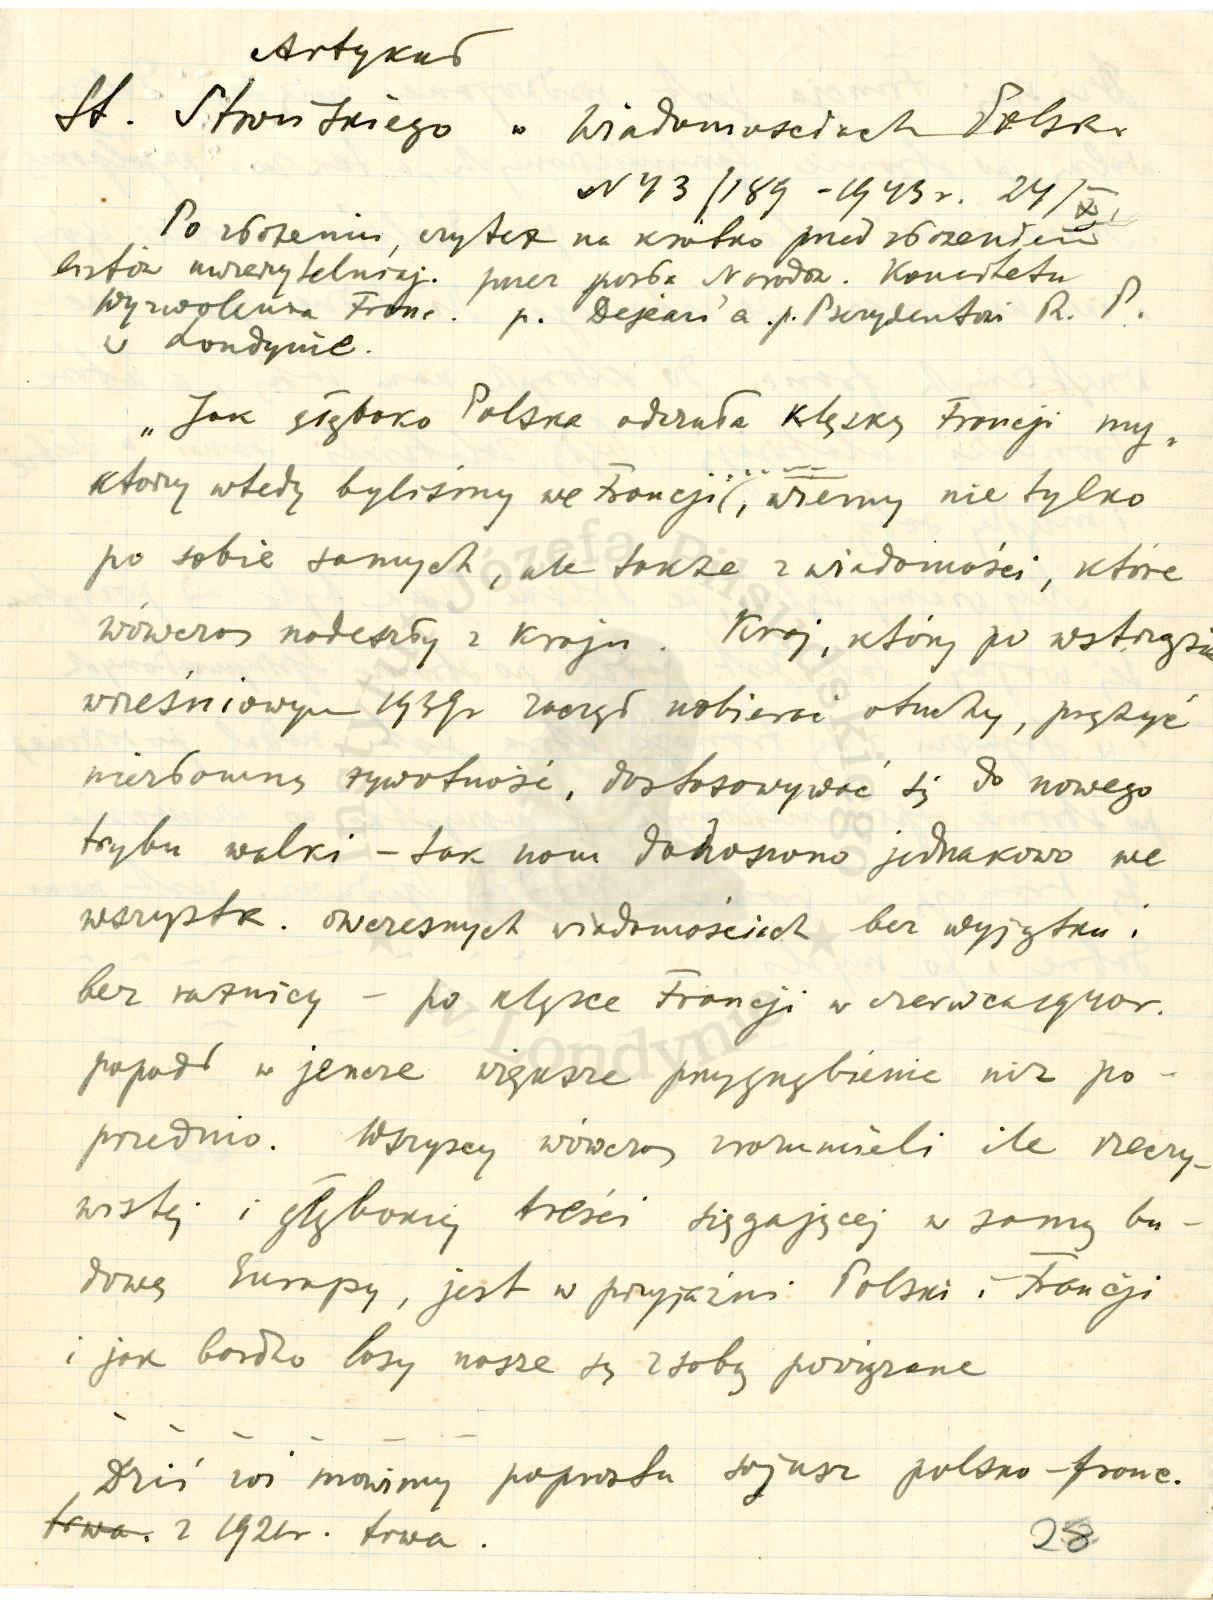 Artykuł
St. Strońskiego w Wiadomościach Polsk.
N 43/189 - 1943 r. 24/X
Po złożeniu, czytaż na krótko przed złożeniem
listów uwierzytelniaj. przez posła Narodow. Komitetu
Wyzwolenia Franc. p. Dejean'a p. Prezydentowi R. P.
w Londynie.
„Jak głęboko Polska odczuła klęskę Francji my,
którzy wtedy byliśmy we Francji (, wiemy nie tylko
po sobie samych, ale także z wiadomości, które
wówczas nadeszły z Kraju. Kraj, który po wstrząsie
wrześniowym 1939r zaczął nabierać otuchy, prężyć
niezłomną żywotność, dostosowywać się do nowego
trybu walki – tak nam donoszono jednakowo we
wszystk. owczesnych wiadomościach bez wyjątku i
bez różnicy – po klęsce Francji w czerwcu 1940r.
popadł w jeszcze większe przygnębienie niż po-
przednio. Wszyscy wówczas zrozumieli ile rzeczy-
wistej i głębokiej treści sięgającej w samą bu-
dowę Europy, jest w przyjaźni Polski i Francji
i jak bardzo losy nasze są z sobą powiązane
Dziś zaś mówimy poprostu sojusz polsko-franc.
trwa. z 1921r. trwa.
28
Instytut Józefa Piłsudskiego w Londynie